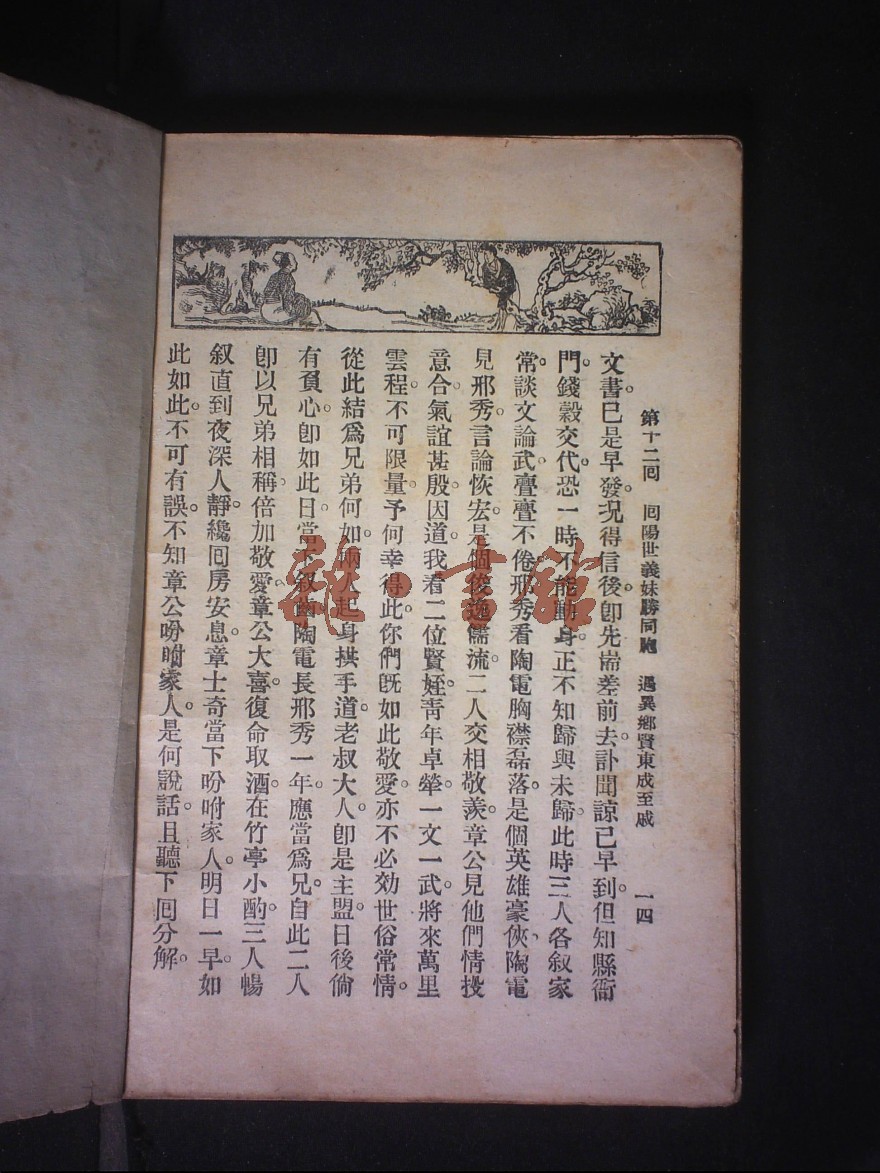 第十二回　回陽世義妹勝同胞　遇異鄉賢東成至戚　一四
文書。已是早發。況得信後。卽先耑差前去。訃聞諒已早到。但知縣衙
門。錢穀交代。恐一時不能動身。正不知歸與未歸。此時三人各叙家
常。談文論武。亹亹不倦。邢秀看陶電胸襟磊落。是個英雄豪俠、陶電
見邢秀。言論恢宏。是個俊逸儒流。二人交相敬羨。章公見他們情投
意合。氣誼甚殷。因道。我看二位賢姪。靑年卓犖。一文一武。將來萬里
雲程。不可限量。予何幸得此。你們旣如此敬愛。亦不必効世俗常情。
從此結爲兄弟何如。兩人起身拱手道。老叔大人。卽是主盟。日後倘
有負心。卽如此日。當下叙齒。陶電長邢秀一年。應當爲兄。自此二人
卽以兄弟相稱、倍加敬愛。章公大喜。復命取酒。在竹亭小酌。三人暢
叙。直到夜深人靜。纔囘房安息。章士奇當下吩咐家人。明日一早。如
此如此。不可有誤。不知章公吩咐家人。是何說話。且聽下囘分解。
龍書館